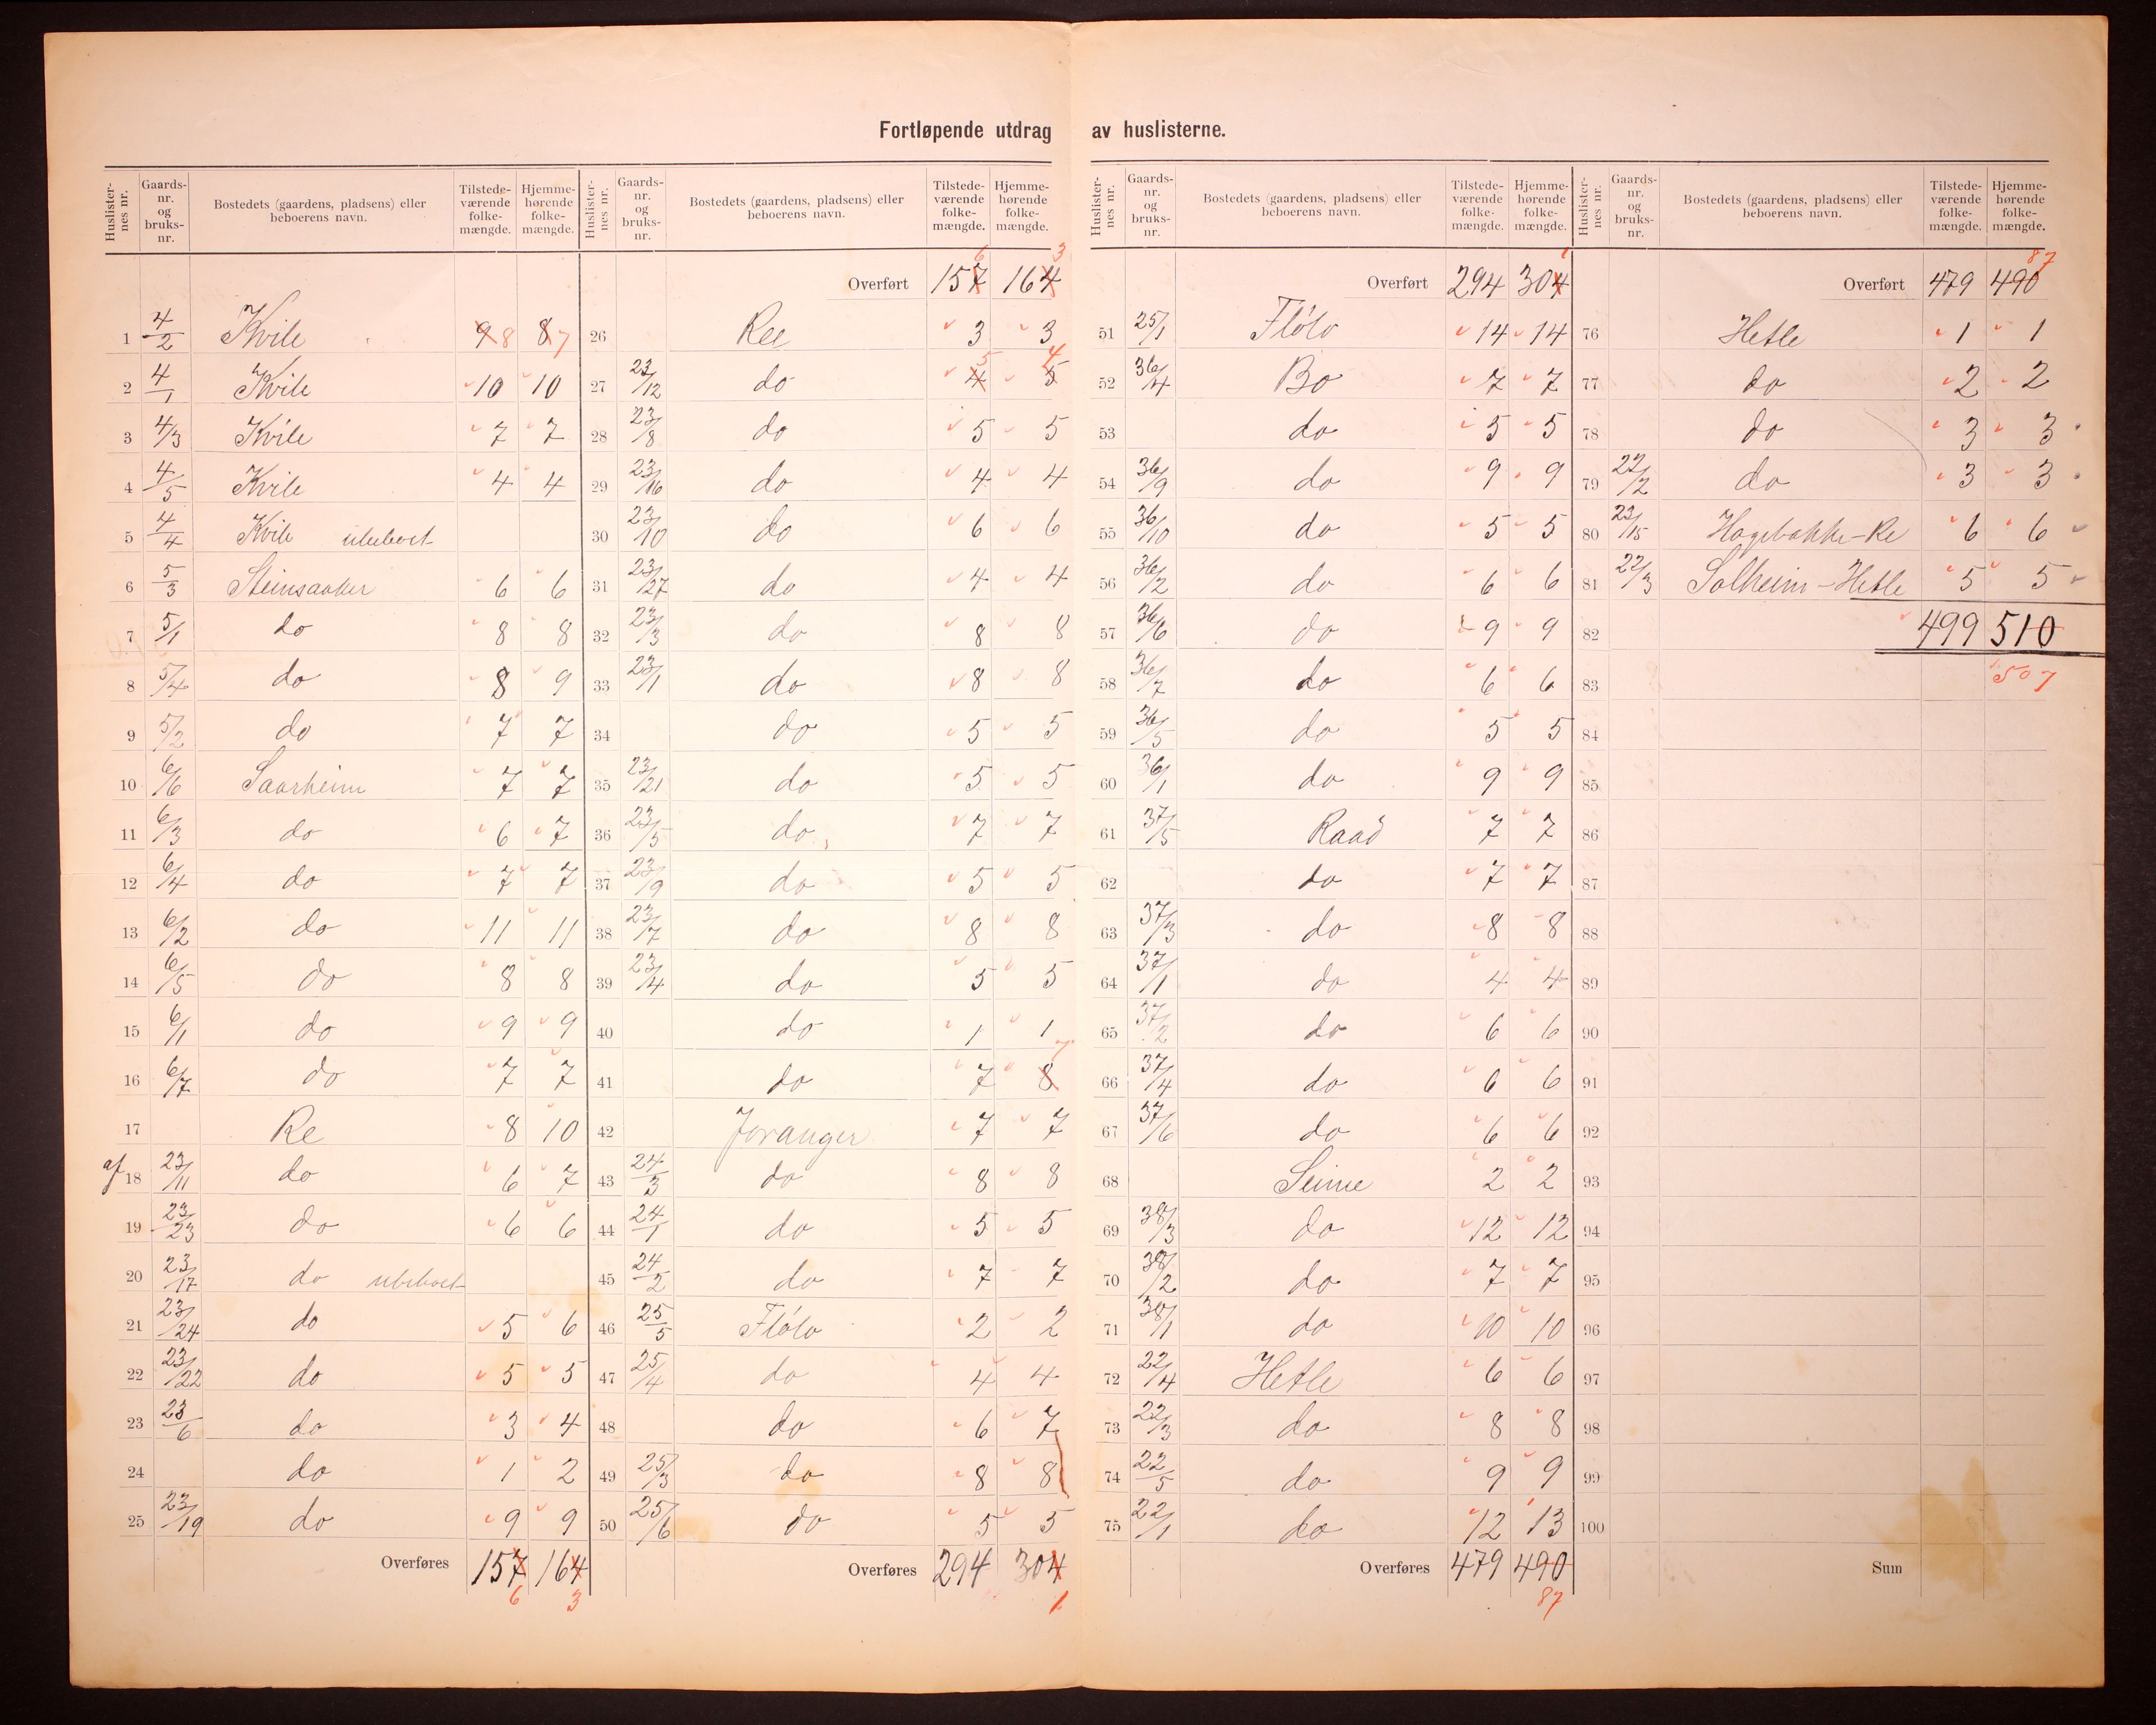 Fortløpende utdrag av huslisterne.
Huslisternes nr. | Gaards-nr. og bruks-nr. | Bostedets (gaardens, pladsens) eller beboerens navn. | Tilstedeværende folkemængde. | Hjemmehørende folkemængde.
1 4/2 Kvile 9 8 8 7
2 4/1 Kvile 10 10
3 4/3 Kvile 7 7
4 4/5 Kvile 4 4
5 4/4 Kvile ubeboet
6 5/3 Steinsaaker 6 6
7 5/1 do 8 8
8 5/4 do 8 9
9 5/2 do 7 7
10 6/6 Saarheim 7 7
11 6/3 do 6 7
12 6/4 do 7 7
13 6/2 do 11 11
14 6/5 do 8 8
15 6/1 do 9 9
16 6/7 do 7 7
17 Re 8 10
af 18 23/11 do 6 7
19 23/23 do 6 6
20 23/17 do ubeboet
21 23/24 do 5 6
22 23/22 do 5 5
23 23/6 do 3 4
24 do 1 2
25 23/19 do 9 9
Overføres 157 164
6 3
Huslisternes nr. | Gaards-nr. og bruks-nr. | Bostedets (gaardens, pladsens) eller beboerens navn. | Tilstedeværende folkemængde. | Hjemmehørende folkemængde.
6 3
Overført 157 164
26 Ree 3 3
27 23/12 do 4 5 5 4
28 23/8 do 5 5
29 23/16 do 4 4
30 23/10 do 6 6
31 23/27 do 4 4
32 23/3 do 8 8
33 23/1 do 8 8
34 do 5 5
35 23/21 do 5 5
36 23/5 do 7 7
37 23/9 do 5 5
38 23/7 do 8 8
39 23/4 do 5 5
40 do 1 1
41 do 7 8 7
42 Joranger 7 7
43 24/3 do 8 8
44 24/1 do 5 5
45 24/2 do 7 7
46 25/5 Flölo 2 2
47 25/4 do 4 4
48 do 6 7
49 25/3 do 8 8
50 25/6 do 5 5
Overføres 294 304
1
Huslisternes nr. | Gaards-nr. og bruks-nr. | Bostedets (gaardens, pladsens) eller beboerens navn. | Tilstedeværende folkemængde. | Hjemmehørende folkemængde.
1
Overført 294 304
51 25/1 Flölo 14 14
52 36/4 Bo 7 7
53 do 5 5
54 36/9 do 9 9
55 36/10 do 5 5
56 36/2 do 6 6
57 36/6 do 9 9
58 36/7 do 6 6
59 36/5 do 5 5
60 36/1 do 9 9
61 37/5 Raad 7 7
62 do 7 7
63 37/3 do 8 8
64 37/1 do 4 4
65 37/2 do 6 6
66 37/4 do 6 6
67 37/6 do 6 6
68 Seime 2 2
69 38/3 do 12 12
70 38/2 do 7 7
71 38/1 do 10 10
72 22/4 Hetle 6 6
73 22/3 do 8 8
74 22/5 do 9 9
75 22/1 do 12 13
Overføres 479 490
87
Huslisternes nr. | Gaards-nr. og bruks-nr. | Bostedets (gaardens, pladsens) eller beboerens navn. | Tilstedeværende folkemængde. | Hjemmehørende folkemængde.
87
Overført 479 490
76 Hetle 1 1
77 do 2 2
78 do 3 3
79 22/2 do 3 3
80 23/15 Hagebakke-Re 6 6
81 22/3 Solheim-Hetle 5 5
82 499 510
83 507
84
85
86
87
88
89
90
91
92
93
94
95
96
97
98
99
100
Sum